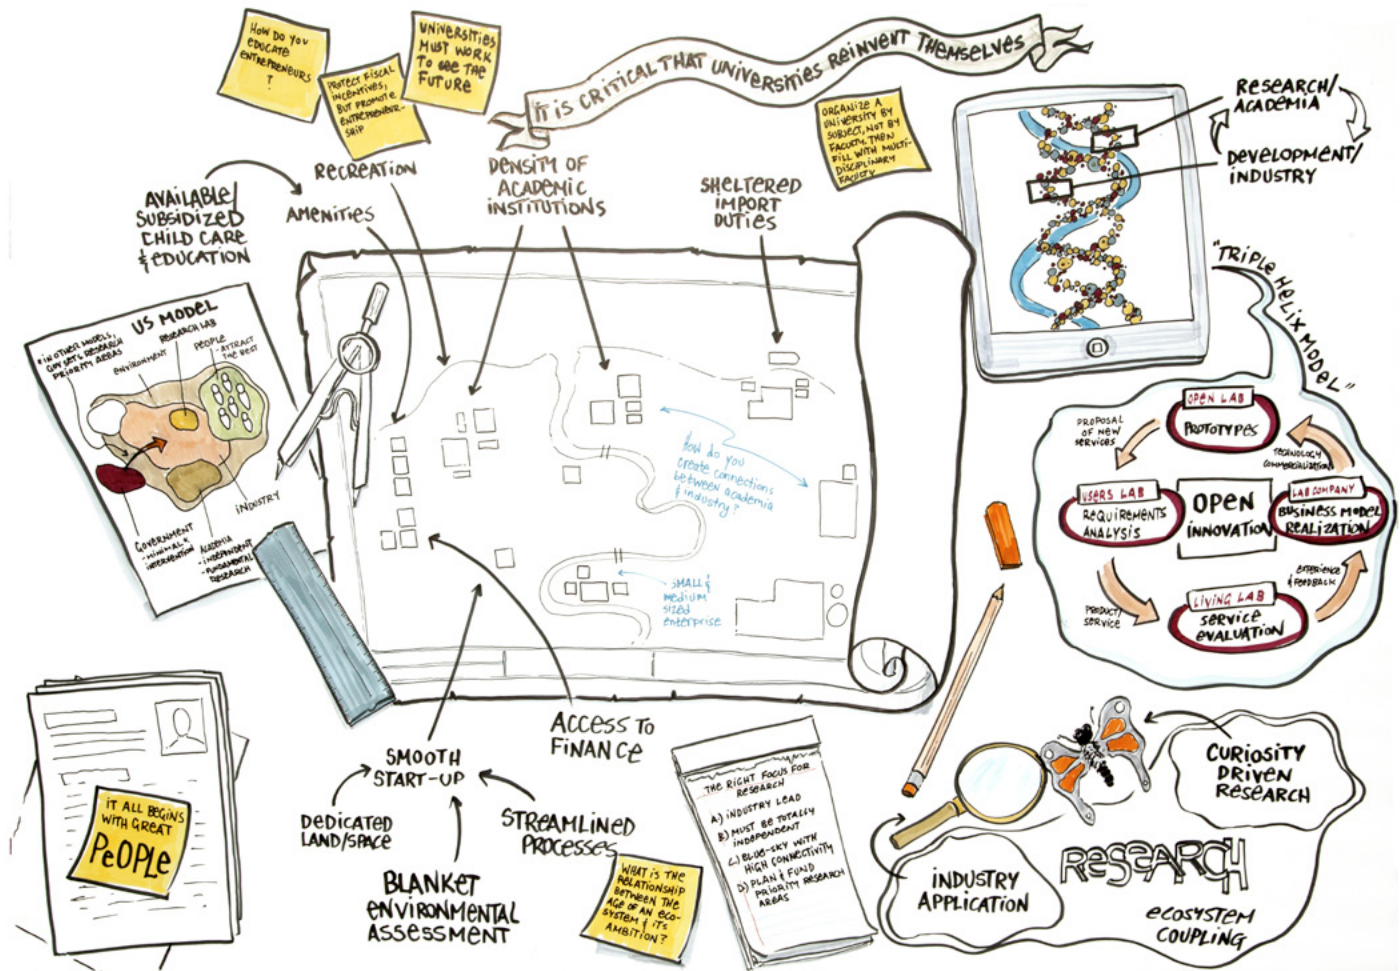 HOW DO YOU
EDUCATE
ENTREPRENEURS
?
PROTECT FISCAL
INCENTIVES,
BUT PROMOTE
ENTREPRENEUR-
SHIP
UNIVERSITIES
MUST WORK
TO SEE THE
FUTURE
IT IS CRITICAL THAT UNIVERSITIES REINVENT THEMSELVES
ORGANIZE A
UNIVERSITY BY
SUBJECT, NOT BY
FACULTY. THEN
FILL WITH MULTI-
DISCIPLINARY
FACULTY
RESEARCH/
ACADEMIA
DEVELOPMENT/
INDUSTRY
"TRIPLE HELIX MODEL"
AVAILABLE/
SUBSIDIZED
CHILD CARE
& EDUCATION
RECREATION
AMENITIES
DENSITY OF
ACADEMIC
INSTITUTIONS
SHELTERED
IMPORT
DUTIES
US MODEL
* IN OTHER MODELS,
GOV SETS RESEARCH
PRIORITY AREAS
ENVIRONMENT
RESEARCH LAB
PEOPLE
- ATTRACT
THE BEST
INDUSTRY
GOVERNMENT
- MINIMAL
INTERVENTION
ACADEMIA
- INDEPENDENT
- FUNDAMENTAL
RESEARCH
How do you
create connections
between academia
& industry?
SMALL &
medium
sized
enterprise
OPEN LAB
PROTOTYPES
PROPOSAL
OF NEW
SERVICES
TECHNOLOGY
COMMERCIALIZATION
USERS LAB
REQUIREMENTS
ANALYSIS
OPEN
INNOVATION
LAB COMPANY
BUSINESS MODEL
REALIZATION
PRODUCT/
SERVICE
EXPERIENCE
& FEEDBACK
LIVING LAB
SERVICE
EVALUATION
ACCESS TO
FINANCE
SMOOTH
START-UP
DEDICATED
LAND/SPACE
STREAMLINED
PROCESSES
BLANKET
ENVIRONMENTAL
ASSESSMENT
IT ALL BEGINS
WITH GREAT
PEOPLE
WHAT IS THE
RELATIONSHIP
BETWEEN THE
AGE OF AN ECO-
SYSTEM & ITS
AMBITION?
THE RIGHT FOCUS FOR
RESEARCH
A) INDUSTRY LEAD
B) MUST BE TOTALLY
INDEPENDENT
C) BLUE-SKY WITH
HIGH CONNECTIVITY
D) PLAN & FUND
PRIORITY RESEARCH
AREAS
CURIOSITY
DRIVEN
RESEARCH
INDUSTRY
APPLICATION
RESEARCH
ECOSYSTEM
COUPLING